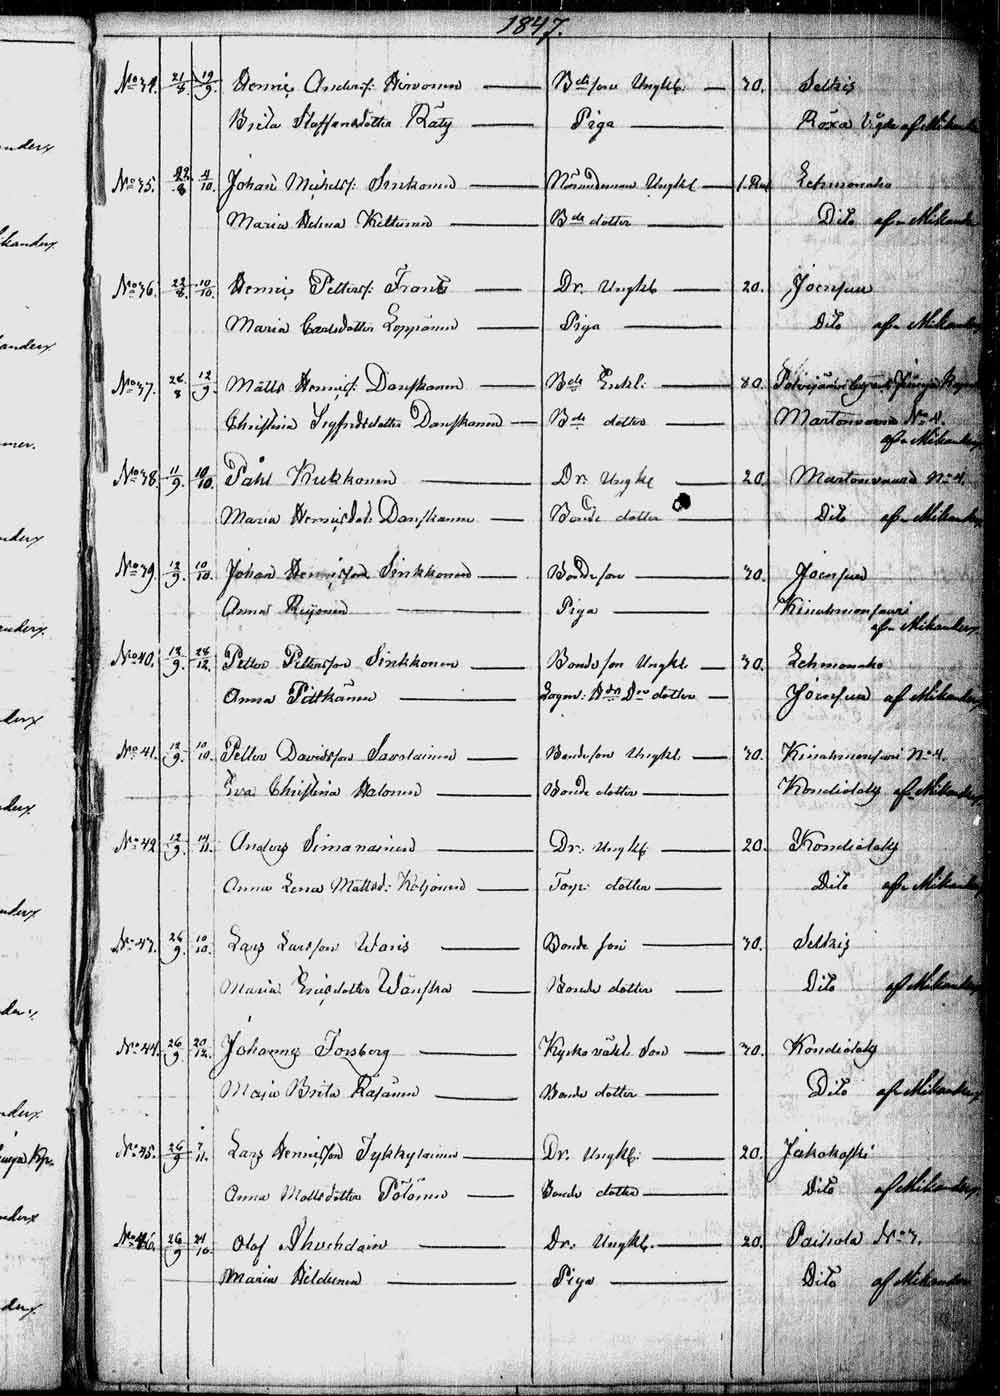 1847.
No 34. 21/8 19/9 Henric Anders: Hirvonen Bde son Ungkl: 30. Selkis
Brita Staffansdotter Räty Piga Röxa Vigde af Mikander
No 35. 22/8 4/10 Johan Michels: Sinkonen Ungkl 1. Rub Lehmonaho
Maria Helena Kettunen Bde dotter Dito af Mikander
No 36. 22/8 10/10 Henric Petters: Frants Dr. Ungkl 20. Joensuu
Maria Carlsdotter Leppänen Piga Dito af Mikander
No 37. 28/8 12/9 Matts Henrics: Danskanen Bde Enkl: 80.
Christina Sigfridsdotter Danskanen Bde dotter Martonvaara No 4.
af Mikander
No 38. 11/9 10/10 Påhl Kukkonen Dr. Ungkl 20. Martonvaara No 4.
Maria Henricsdotr Danskanen Bonde dotter Dito af Mikander
No 39. 12/9 10/10 Johan Henricsson Sinkkonen Bondeson 30. Joensuu
Anna Reijonen Piga Kinahmonsaari
af Mikander
No 40. 18/9 28/12 Petter Pettersson Sinkkonen Bondeson Ungkl 30. Lehmonaho
Anna Pitkänen dotter Joensuu af Mikander
No 41. 12/9 10/10 Petter Davidsson Savolainen Bondeson Ungkl 30. Kinahmonsaari No 4.
Eva Christina Halonen Bonde dotter Kondiolaks af Mikander
No 42 12/9 14/11 Anders Simanainen Dr. Ungkl: 20. Kondiolaks
Anna Lena Mattsd: Kotjonen Torp: dotter Dito af Mikander
No 43. 26/9 10/10. Lars Larsson Waris Bonde son 30. Selkis
Maria Ericsdotter Wänskä Bonde dotter Dito af Mikander
No 44. 26/9 20/12. Johannes Forsberg Kyrkovakt. Son 30. Kondiolaks
Maja Brita Räsänen Bonde dotter Dito af Mikander
No 45. 26/9 7/11. Lars Henricsson Tykkyläinen Dr. Ungkl: 20. Jakokoski
Anna Mattsdotter Pölönen Bonde dotter Dito af Mikander
No 46. 26/9 24/10. Olof Dr: Ungkl. 20. Paihola No 3.
Maria Hildunen Piga Dito af Mikander